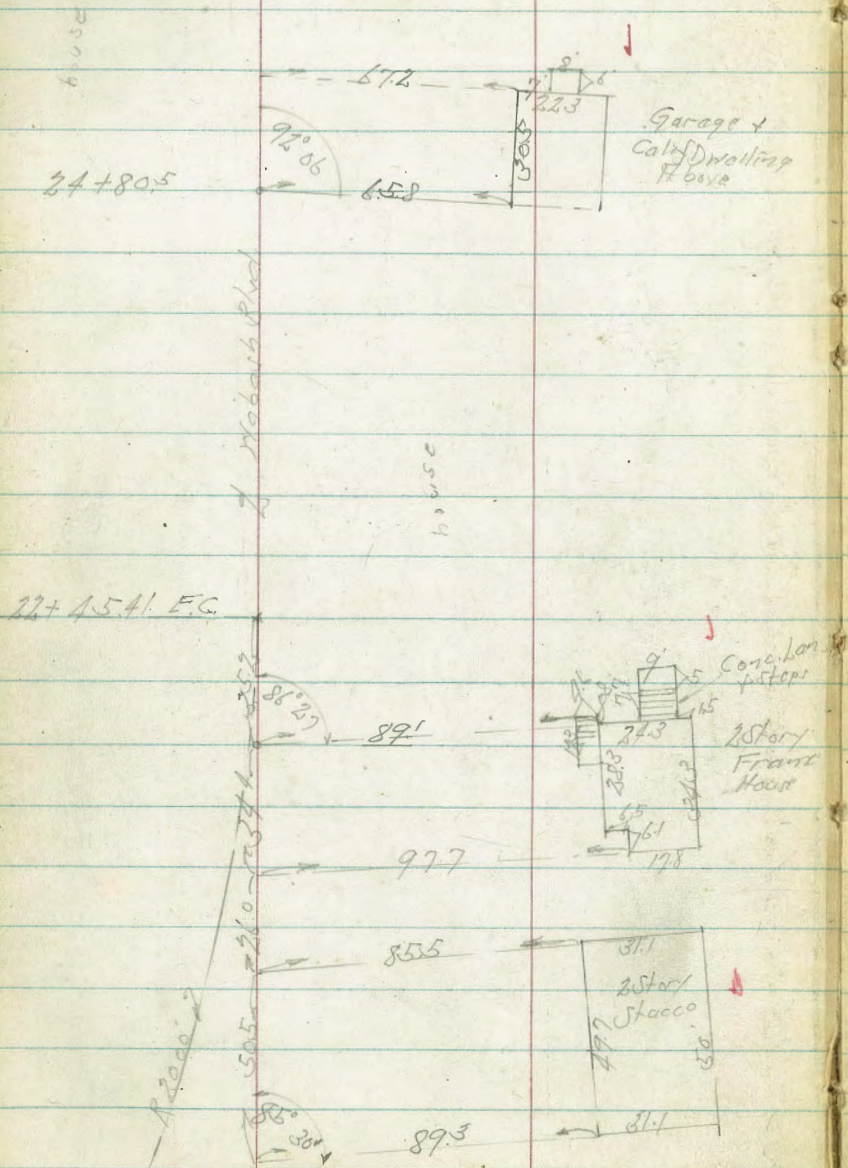 house
67.2
8'
6'
7'
22.3
Garage +
Dwelling
Above
30.5
92° 06
24 + 80.5
65.8
Wabash Blvd
house
22 + 45.41 E.C.
35.2
86° 27
89.1
9'
5
Conc. Lan
+ Steps
1.5
24.3
2 Story
Frame
House
28.3
34.3
6.5
6.1
17.8
34.4
97.7
26.0
85.5
31.1
2 Story
Stucco
49.7
50'
50.5
R 2000'
86°
30
89.3
31.1